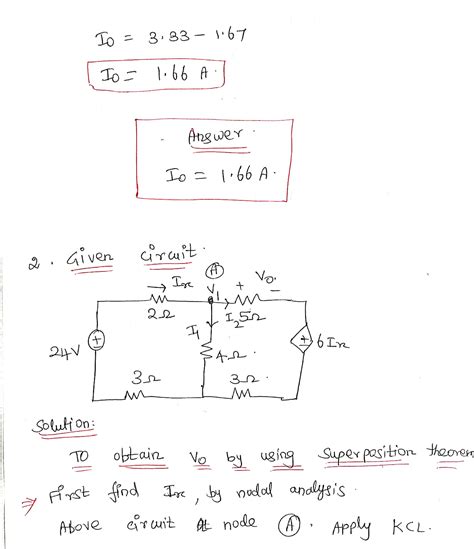 I0 = 3.33 - 1.67
I0 = 1.66 A.
Answer.
I0 = 1.66 A.
2. Given circuit.
Ⓐ
→ Ix V1 + V0 -
2Ω I2 5Ω
I1
24V + 4Ω. + 6Ix
3Ω 3Ω
Solution:
TO obtain V0 by using superposition theorem
⇒ First find Ix, by nodal analysis.
Above circuit At node Ⓐ. Apply KCL.